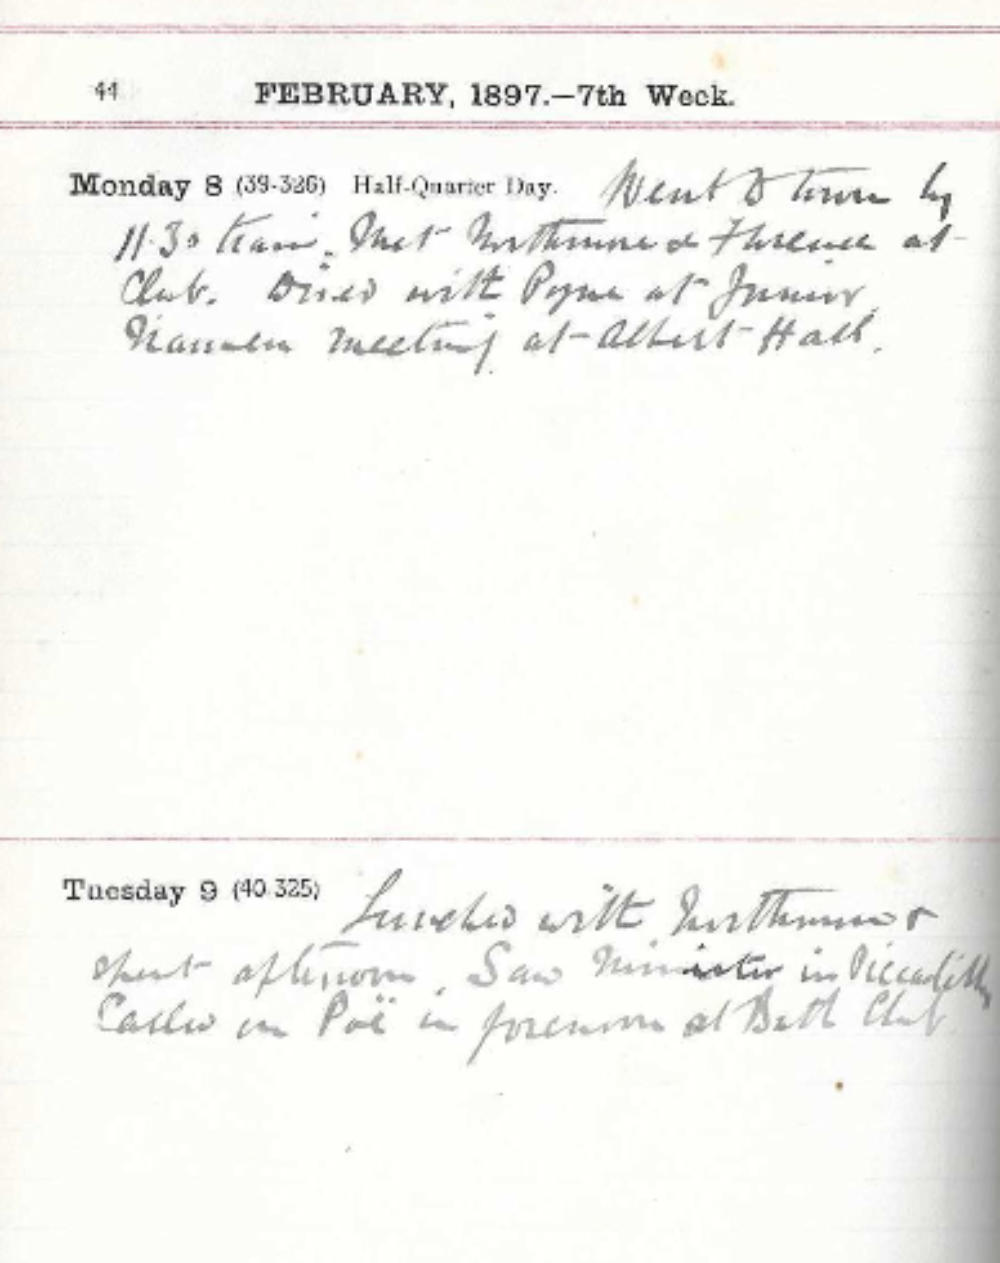 44 FEBRUARY, 1897.—7th Week.
Monday 8 (39-326) Half-Quarter Day. Went to town by
11.30 train. Met Northmore & Florence at
Club. Dined with Pyne at Junior.
Nansen meeting at Albert Hall.
Tuesday 9 (40.325) Lunched with Northmore &
spent afternoon. Saw Minister in Piccadilly
Called on Poë in forenoon at Bath Club